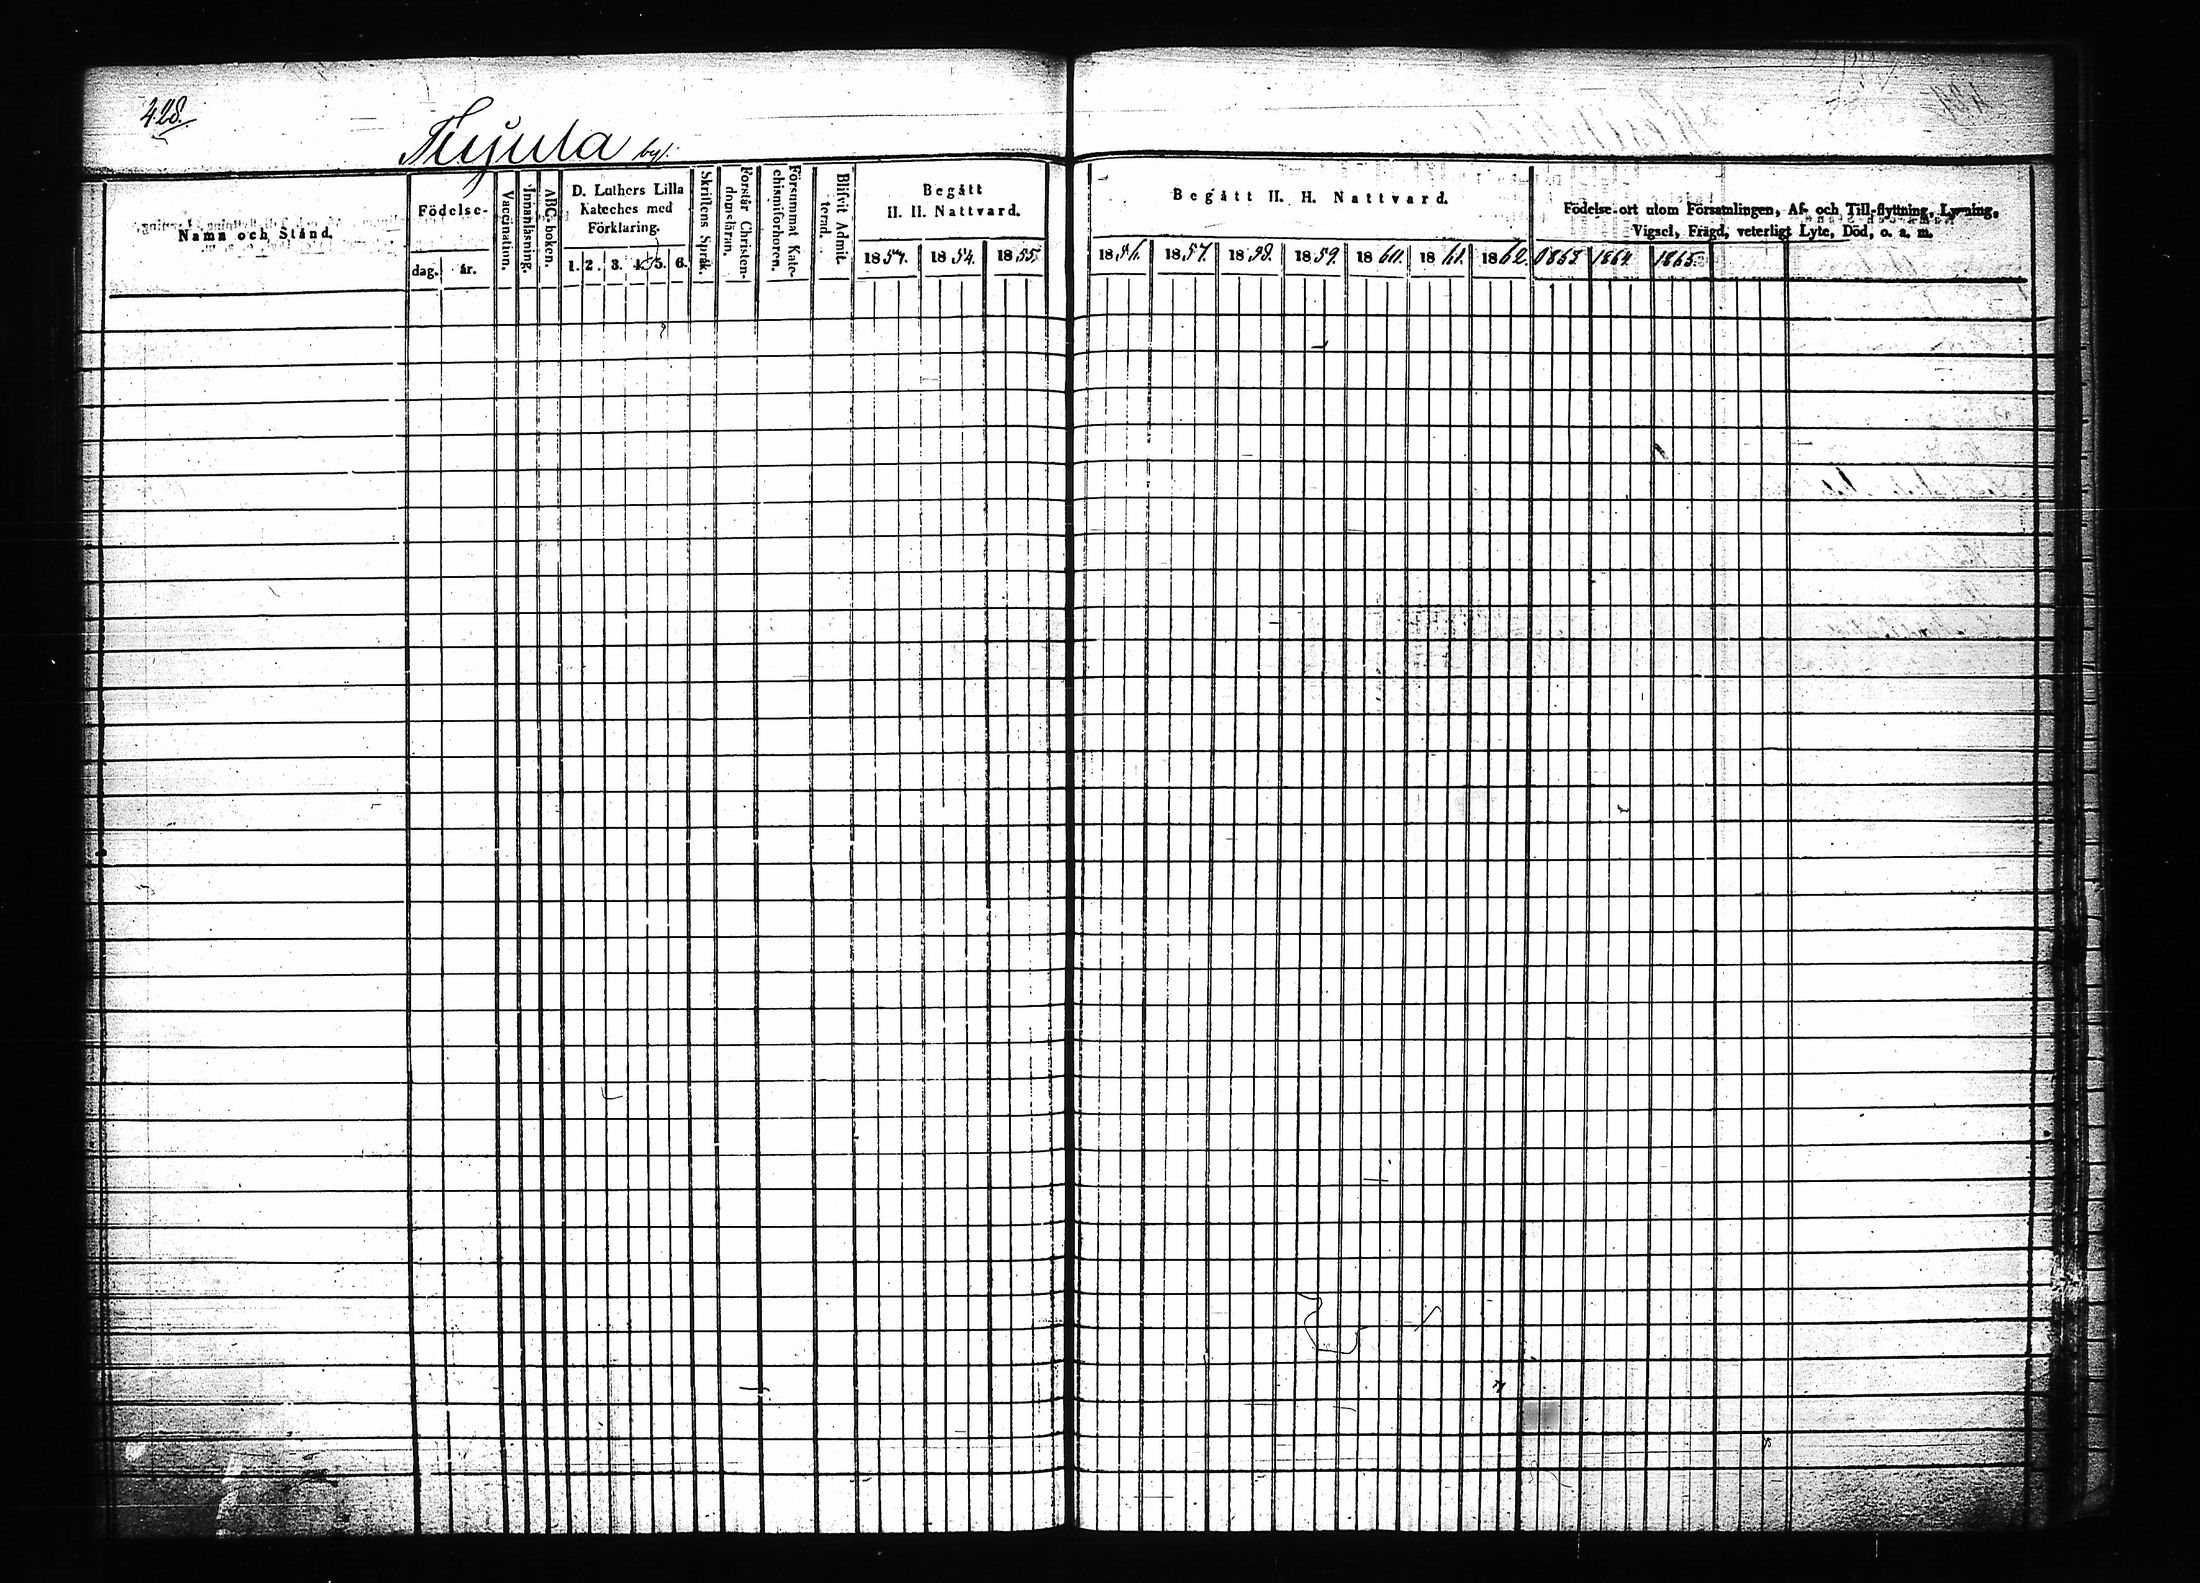 428.
Tujula by.
Namn och Stånd.
Födelse-
dag.
år.
Vaccination.
Innanläsning.
ABC-boken.
D. Luthers Lilla
Kateches med
Förklaring.
1. 2. 3. 4. 5. 6.
Skriftens Språk.
Förstår Christen-
domsläran.
Försummat Kate-
chismiförhören.
Blifvit Admit-
terad.
Begått
H. H. Nattvard.
1854. 1855.
Begått H. H. Nattvard.
1856. 1857. 1858. 1859. 1860. 1861. 1862.
Födelse-ort utom Församlingen, Af- och Till-flyttning, Lysning,
Vigsel, Frägd, veterligt Lyte, Död, o. a. m.
1863. 1864. 1865.